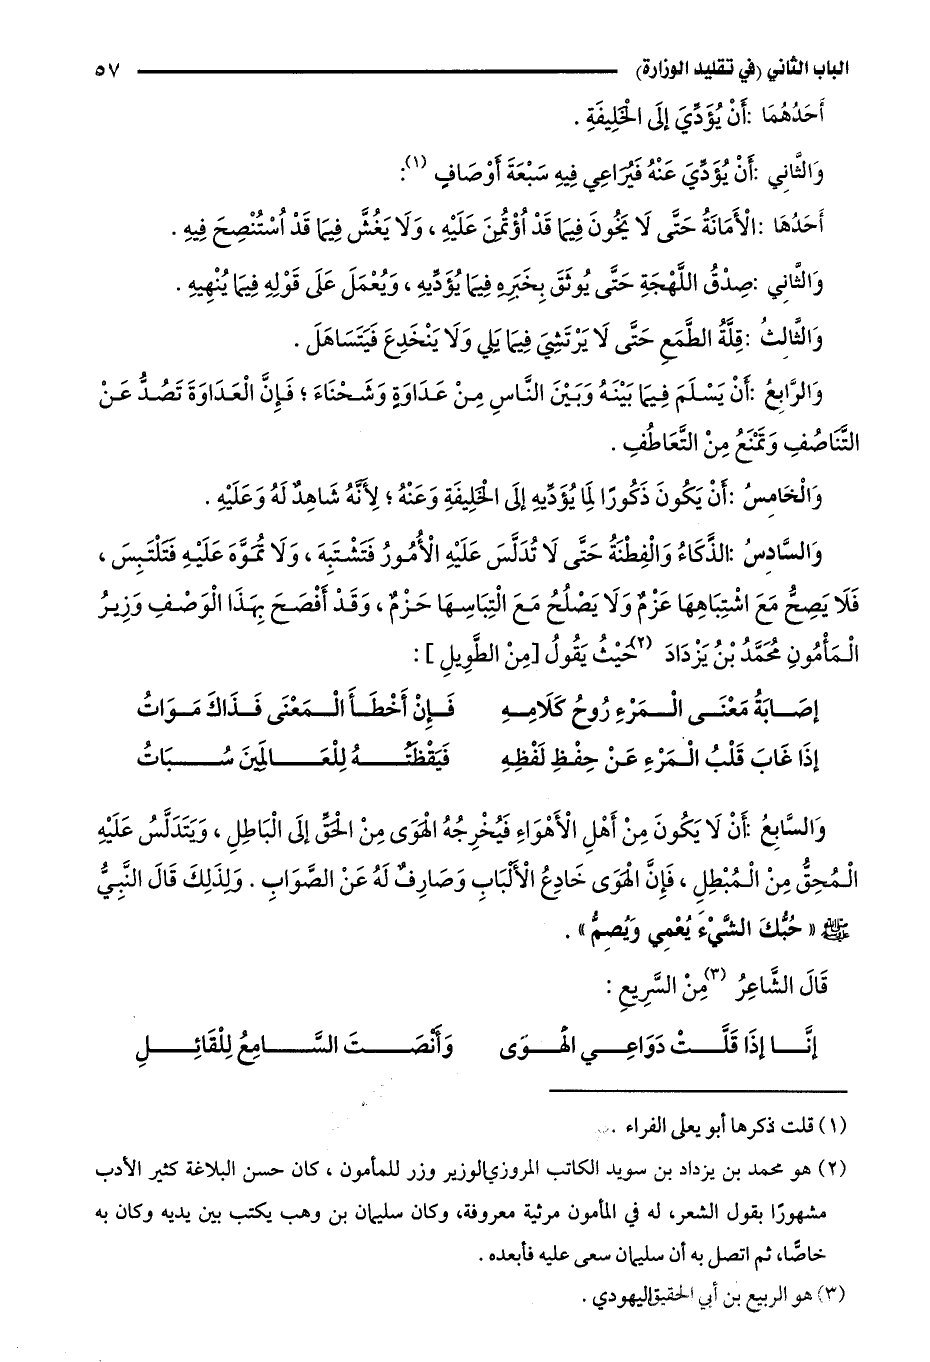 الباب الثاني (في تقليد الوزارة) ٥٧
أَحَدُهُمَا :أَنْ يُؤَدِّيَ إِلَى الْخَلِيفَةِ .
وَالثَّانِي :أَنْ يُؤَدِّيَ عَنْهُ فَيُرَاعِي فِيهِ سَبْعَةَ أَوْصَافٍ (١):
أَحَدُهَا :الْأَمَانَةُ حَتَّى لَا يَخُونَ فِيمَا قَدْ اُؤْتُمِنَ عَلَيْهِ ، وَلَا يَغُشَّ فِيمَا قَدْ اُسْتُنْصِحَ فِيهِ .
وَالثَّانِي :صِدْقُ اللَّهْجَةِ حَتَّى يُوثَقَ بِخَبَرِهِ فِيمَا يُؤَدِّيهِ ، وَيُعْمَلَ عَلَى قَوْلِهِ فِيمَا يُنْهِيهِ .
وَالثَّالِثُ :قِلَّةُ الطَّمَعِ حَتَّى لَا يَرْتَشِيَ فِيمَا يَلِي وَلَا يَنْخَدِعَ فَيَتَسَاهَلَ .
وَالرَّابِعُ :أَنْ يَسْلَمَ فِيمَا بَيْنَهُ وَبَيْنَ النَّاسِ مِنْ عَدَاوَةٍ وَشَحْنَاءَ ؛ فَإِنَّ الْعَدَاوَةَ تَصُدُّ عَنْ
التَّنَاصُفِ وَتَمْنَعُ مِنْ التَّعَاطُفِ .
وَالْخَامِسُ :أَنْ يَكُونَ ذَكُورًا لِمَا يُؤَدِّيهِ إِلَى الْخَلِيفَةِ وَعَنْهُ ؛ لِأَنَّهُ شَاهِدٌ لَهُ وَعَلَيْهِ .
وَالسَّادِسُ :الذَّكَاءُ وَالْفِطْنَةُ حَتَّى لَا تُدَلَّسَ عَلَيْهِ الْأُمُورُ فَتَشْتَبِهَ ، وَلَا تُمَوَّهَ عَلَيْهِ فَتَلْتَبِسَ ،
فَلَا يَصِحُّ مَعَ اشْتِبَاهِهَا عَزْمٌ وَلَا يَصْلُحُ مَعَ الْتِبَاسِهَا حَزْمٌ ، وَقَدْ أَفْصَحَ بِهَذَا الْوَصْفِ وَزِيرُ
الْمَأْمُونِ مُحَمَّدُ بْنُ يَزْدَادَ (٢)حَيْثُ يَقُولُ [مِنْ الطَّوِيلِ ] :
إصَابَةُ مَعْنَى الْمَرْءِ رُوحُ كَلَامِهِ فَإِنْ أَخْطَأَ الْمَعْنَى فَذَاكَ مَوَاتُ
إذَا غَابَ قَلْبُ الْمَرْءِ عَنْ حِفْظِ لَفْظِهِ فَيَقْظَتُهُ لِلْعَالَمِينَ سُبَاتُ
وَالسَّابِعُ :أَنْ لَا يَكُونَ مِنْ أَهْلِ الْأَهْوَاءِ فَيُخْرِجُهُ الْهَوَى مِنْ الْحَقِّ إِلَى الْبَاطِلِ ، وَيَتَدَلَّسُ عَلَيْهِ
الْمُحِقُّ مِنْ الْمُبْطِلِ ، فَإِنَّ الْهَوَى خَادِعُ الْأَلْبَابِ وَصَارِفٌ لَهُ عَنْ الصَّوَابِ . وَلِذَلِكَ قَالَ النَّبِيُّ
ﷺ « حُبُّكَ الشَّيْءَ يُعْمِي وَيُصِمُّ» .
قَالَ الشَّاعِرُ (٣)مِنْ السَّرِيعِ :
إنَّا إذَا قَلَّتْ دَوَاعِي الْهَوَى وَأَنْصَتَ السَّامِعُ لِلْقَائِلِ
(١) قلت ذكرها أبو يعلى الفراء .
(٢) هو محمد بن يزداد بن سويد الكاتب المروزي الوزير وزر للمأمون ، كان حسن البلاغة كثير الأدب
مشهورًا بقول الشعر، له في المأمون مرثية معروفة، وكان سليمان بن وهب يكتب بين يديه وكان به
خاصًّا، ثم اتصل به أن سليمان سعى عليه فأبعده .
(٣) هو الربيع بن أبي الحقيق اليهودي .